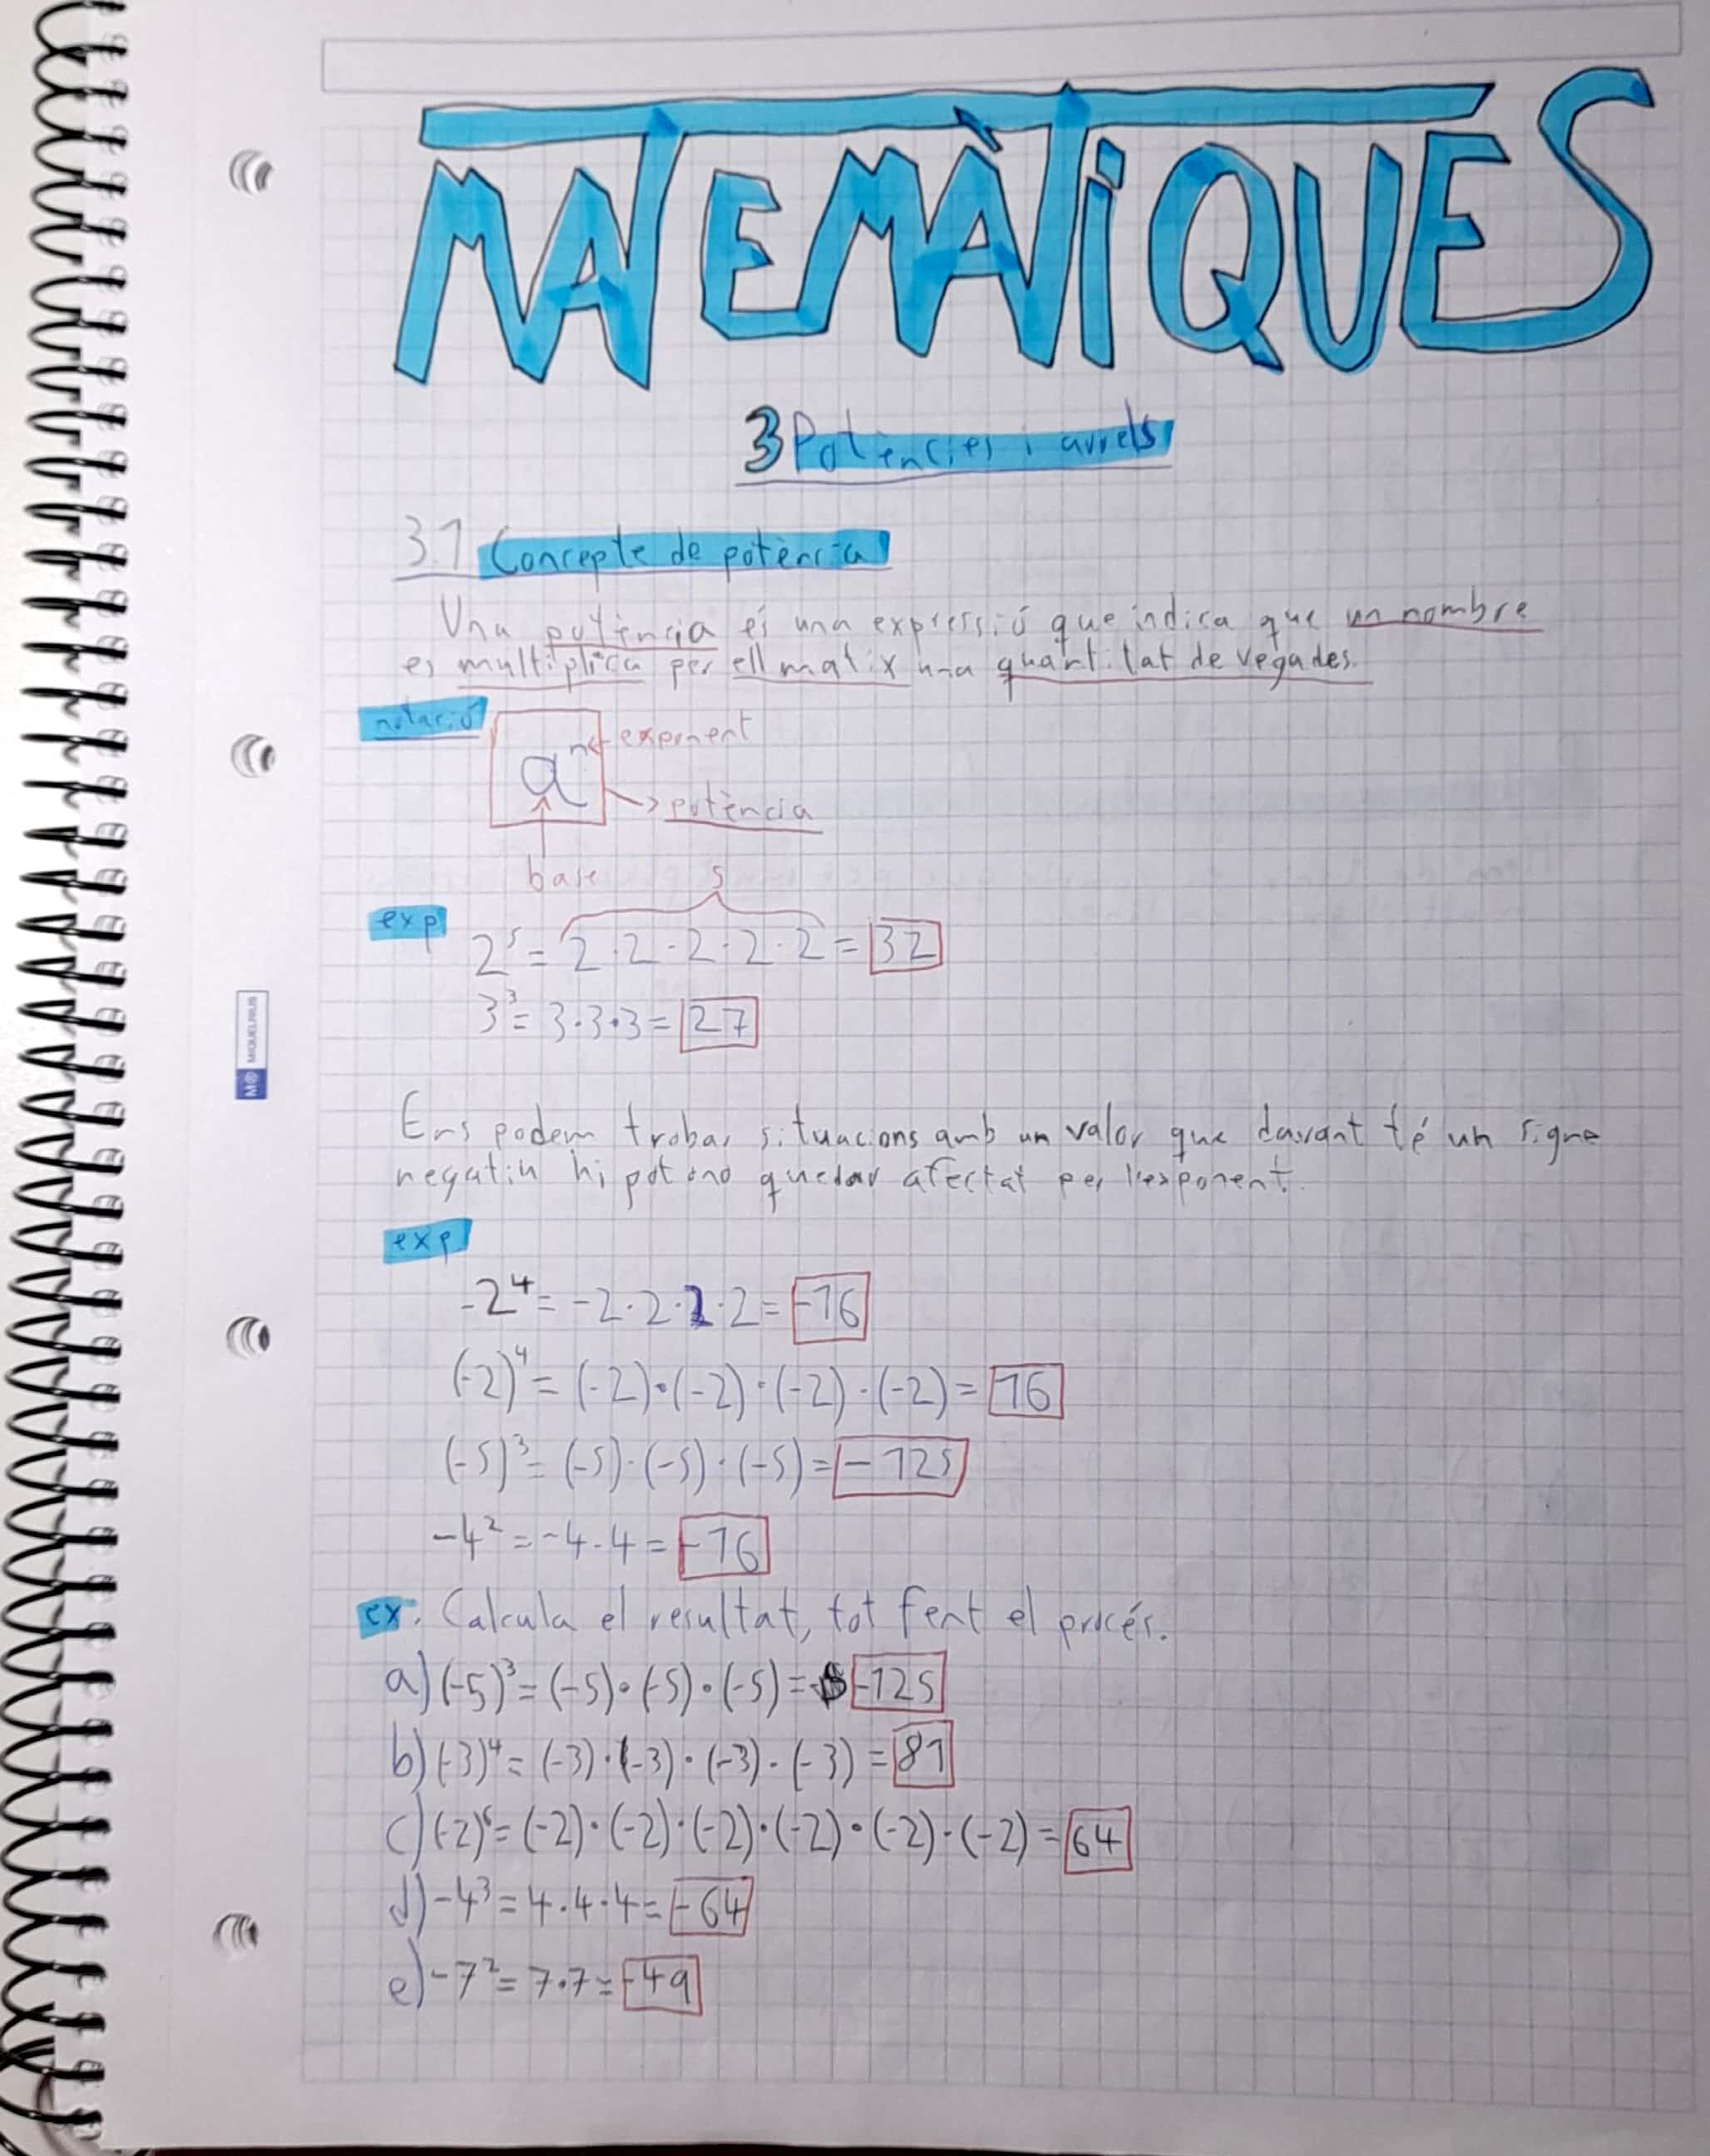 MATEMÀTIQUES
3 Potències i arrels
3.1 Concepte de potència
Una potència és una expressió que indica que un nombre
es multiplica per ell mateix una quantitat de vegades.
notació
aⁿ ← exponent
→ potència
base
5
exp
2⁵ = 2 · 2 · 2 · 2 · 2 = 32
3³ = 3 · 3 · 3 = 27
MIQUELRIUS
Ens podem trobar situacions amb un valor que davant té un signe
negatiu hi pot o no quedar afectat per l'exponent.
exp
-2⁴ = -2 · 2 · 2 · 2 = -16
(-2)⁴ = (-2) · (-2) · (-2) · (-2) = 16
(-5)³ = (-5) · (-5) · (-5) = -125
-4² = -4 · 4 = -16
ex. Calcula el resultat, tot fent el procés.
a) (-5)³ = (-5) · (-5) · (-5) = -125
b) (-3)⁴ = (-3) · (-3) · (-3) · (-3) = 81
c) (-2)⁶ = (-2) · (-2) · (-2) · (-2) · (-2) · (-2) = 64
d) -4³ = 4 · 4 · 4 = -64
e) -7² = 7 · 7 = -49